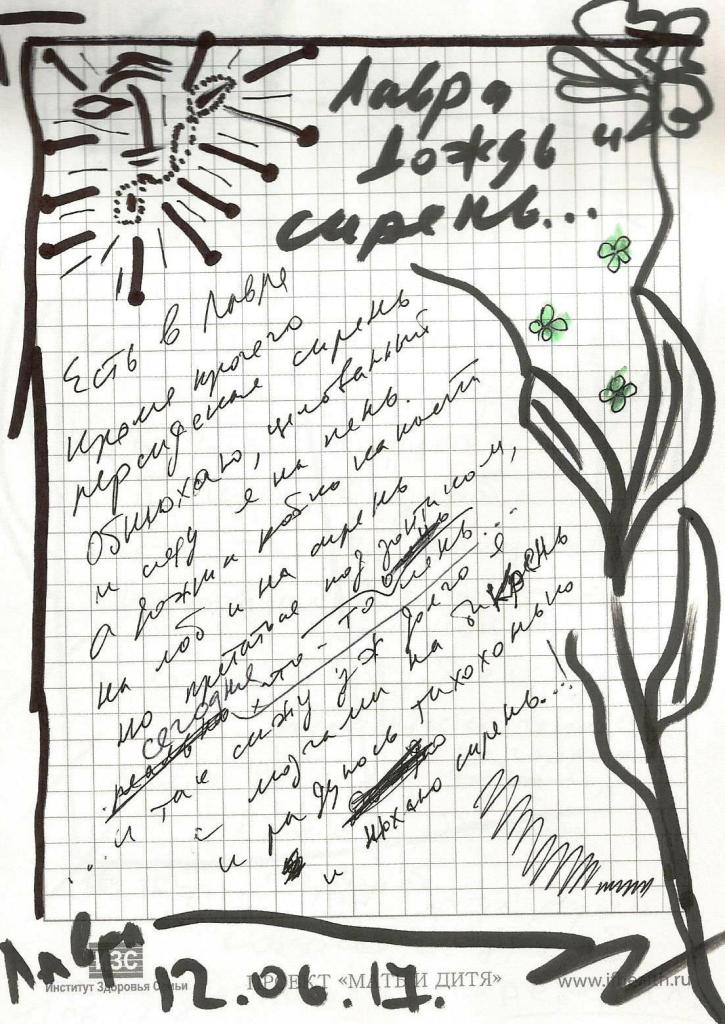 Лавра
дождь и
сирень...
Есть в Лавре
кроме прочего
персидская сирень
Обнюхаю, целованный
и сяду я на пень.
А дождик
на лоб и на сирень
но прятаться под зонтиком,
сегодня что-то лень...
и так сижу уж долго я
с мозгами на бикрень
и радуюсь тихохонько
и нюхаю сирень...!
Лавра
12.06.17.
ИЗС
Институт Здоровья Семьи
ПРОЕКТ «МАТЬ И ДИТЯ»
www.ifhealth.ru